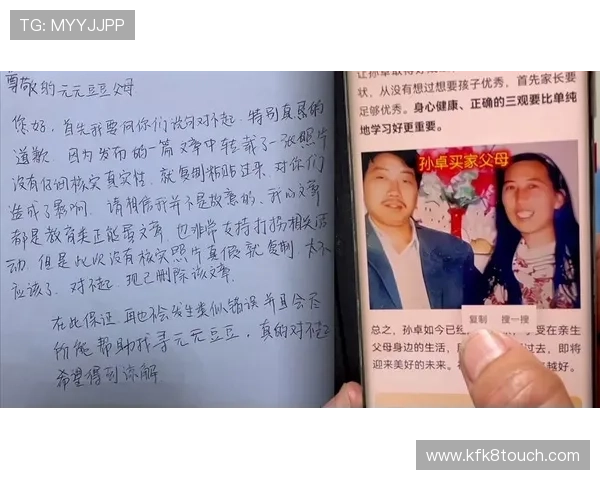 TG: MYYJJPP
尊敬的元元豆豆父母
您好，首先我要向你们说句对不起，特别真诚的
道歉，因为发布的一篇文章中转载了一张照片
没有仔细核实真实性，就复制粘贴过来，对你们
造成了影响，请相信我并不是故意的，我的文章
都是教育类正能量文章，也非常支持打拐相关活
动，但是此次没有核实照片真假就复制，太不
应该了，对不起，现已删除该文章。
在此保证，再也不会发生类似错误并且会尽
所能帮助找寻元元豆豆，真的对不起
希望得到谅解
让孙卓取得好成
状，从没有想过想要孩子优秀，首先家长要
足够优秀。身心健康、正确的三观要比单纯
地学习好更重要。
孙卓买家父母
复制 搜一搜
总之，孙卓如今已经 享受在亲生
父母身边的生活， 过去，即将
迎来美好的未来。 越好。
www.kfk8touch.com